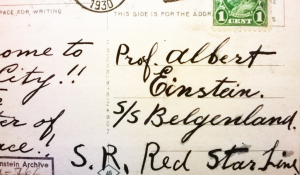 1930
PACE FOR WRITING
THIS SIDE IS FOR THE ADDRESS
1 CENT 1
ome to
City!!
ter of
ace!!
Prof. Albert
Einstein.
S/S Belgenland.
S.R, Red Star Line
instein Archive